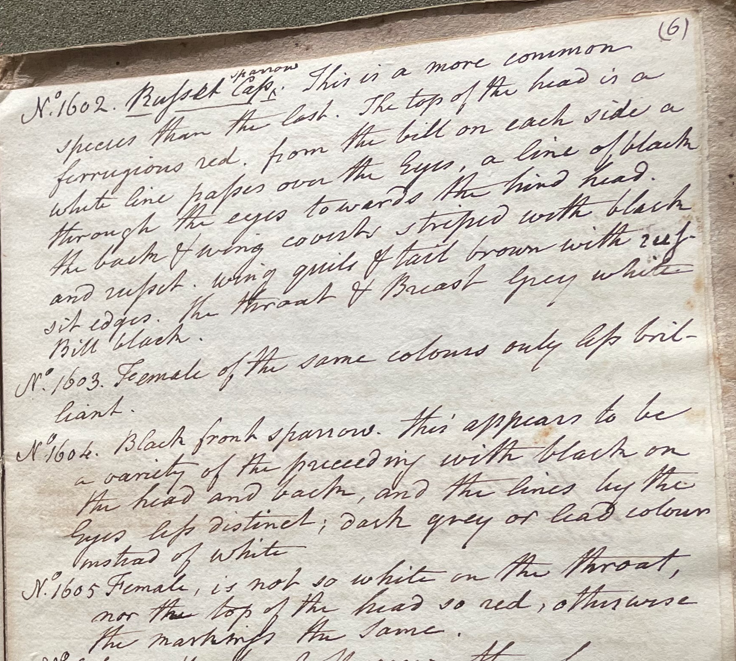 (6)
No. 1602. Russet sparrow Cap. This is a more common
species than the last. The top of the head is a
ferrugious red. from the bill on each side a
white line passes over the Eyes, a line of black
through the eyes towards the hind head.
the back & wing coverts striped with black
and russet. wing quils & tail brown with rus-
sit edges. the throat & Breast Grey white
Bill black.
No. 1603. Female of the same colours only less bril-
liant.
No. 1604. Black front sparrow. this appears to be
a variety of the preceeding with black on
the head and back, and the lines by the
Eyes less distinct; dark grey or lead colour
instead of white
No. 1605 Female, is not so white on the throat,
nor the top of the head so red, otherwise
the markings the same.